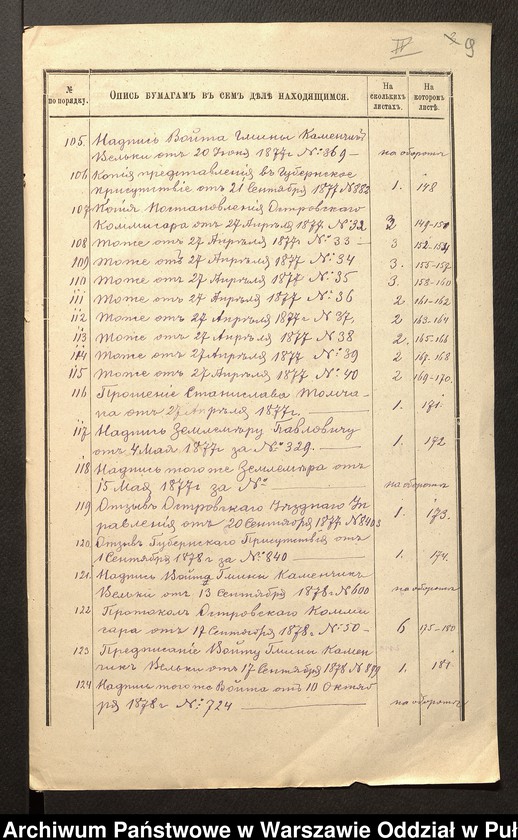 IV 9
№ по порядку. Опись бумагамъ въ семъ дѣлѣ находящимся. На сколькихъ листахъ. На которомъ листѣ.
105 Надпись Войта Гмины Каменчикъ
Вельки отъ 20 Іюня 1877 г № 369 — на оборотѣ
106 Копія представленія въ Губернское
присутствіе отъ 21 Сентября 1877 № 382 1. 148
107 Копія Постановленія Островскаго
Коммисара отъ 27 Апрѣля 1877 № 32 2 149-150
108 Тоже отъ 27 Апрѣля 1877 г № 33 — 3 152-154
109 Тоже отъ 27 Апрѣля 1877 № 34 3. 155-157
110 Тоже отъ 27 Апрѣля 1877 № 35 3. 158-160
111 Тоже отъ 27 Апрѣля 1877 № 36 2 161-162
112 Тоже отъ 27 Апрѣля 1877 г № 37, 2 163-164
113 Тоже отъ 27 Апрѣля 1877 № 38 2, 165-166
114 Тоже отъ 27 Апрѣля 1877 № 39 2 167-168
115 Тоже отъ 27 Апрѣля 1877 № 40 2 169-170.
116 Прошеніе Станислава
отъ 27 Апрѣля 1877 г. — 1. 171.
117 Надпись Землемѣру Павловичу
отъ 4 Мая 1877 г за № 329. — 1. 172
118 Надпись тогоже Землемѣра отъ
15 Мая 1877 г за № — на оборотѣ
119 Отзывъ Островскаго Уѣзднаго Уп
равленія отъ 20 Сентября 1877 № 8403 1. 173.
120. Отзывъ Губернскаго Присутствія отъ
1 Сентября 1878 г за № 840 — 1. 174.
121. Надпись Войта Гмины Каменчик
Вельки отъ 13 Сентября 1878 г № 600 на оборотѣ
122 Протоколъ Островскаго Комми
сара отъ 17 Сентября 1878 г № 50 — 6 175-180
123 Предписаніе Войту Гмины Камен
чикъ Вельки отъ 17 Сентября 1878 № 1. 181
124 Надпись тогоже Войта отъ 10 Октяб
ря 1878 г № 724 — на оборотѣ
Archiwum Państwowe w Warszawie Oddział w Puł